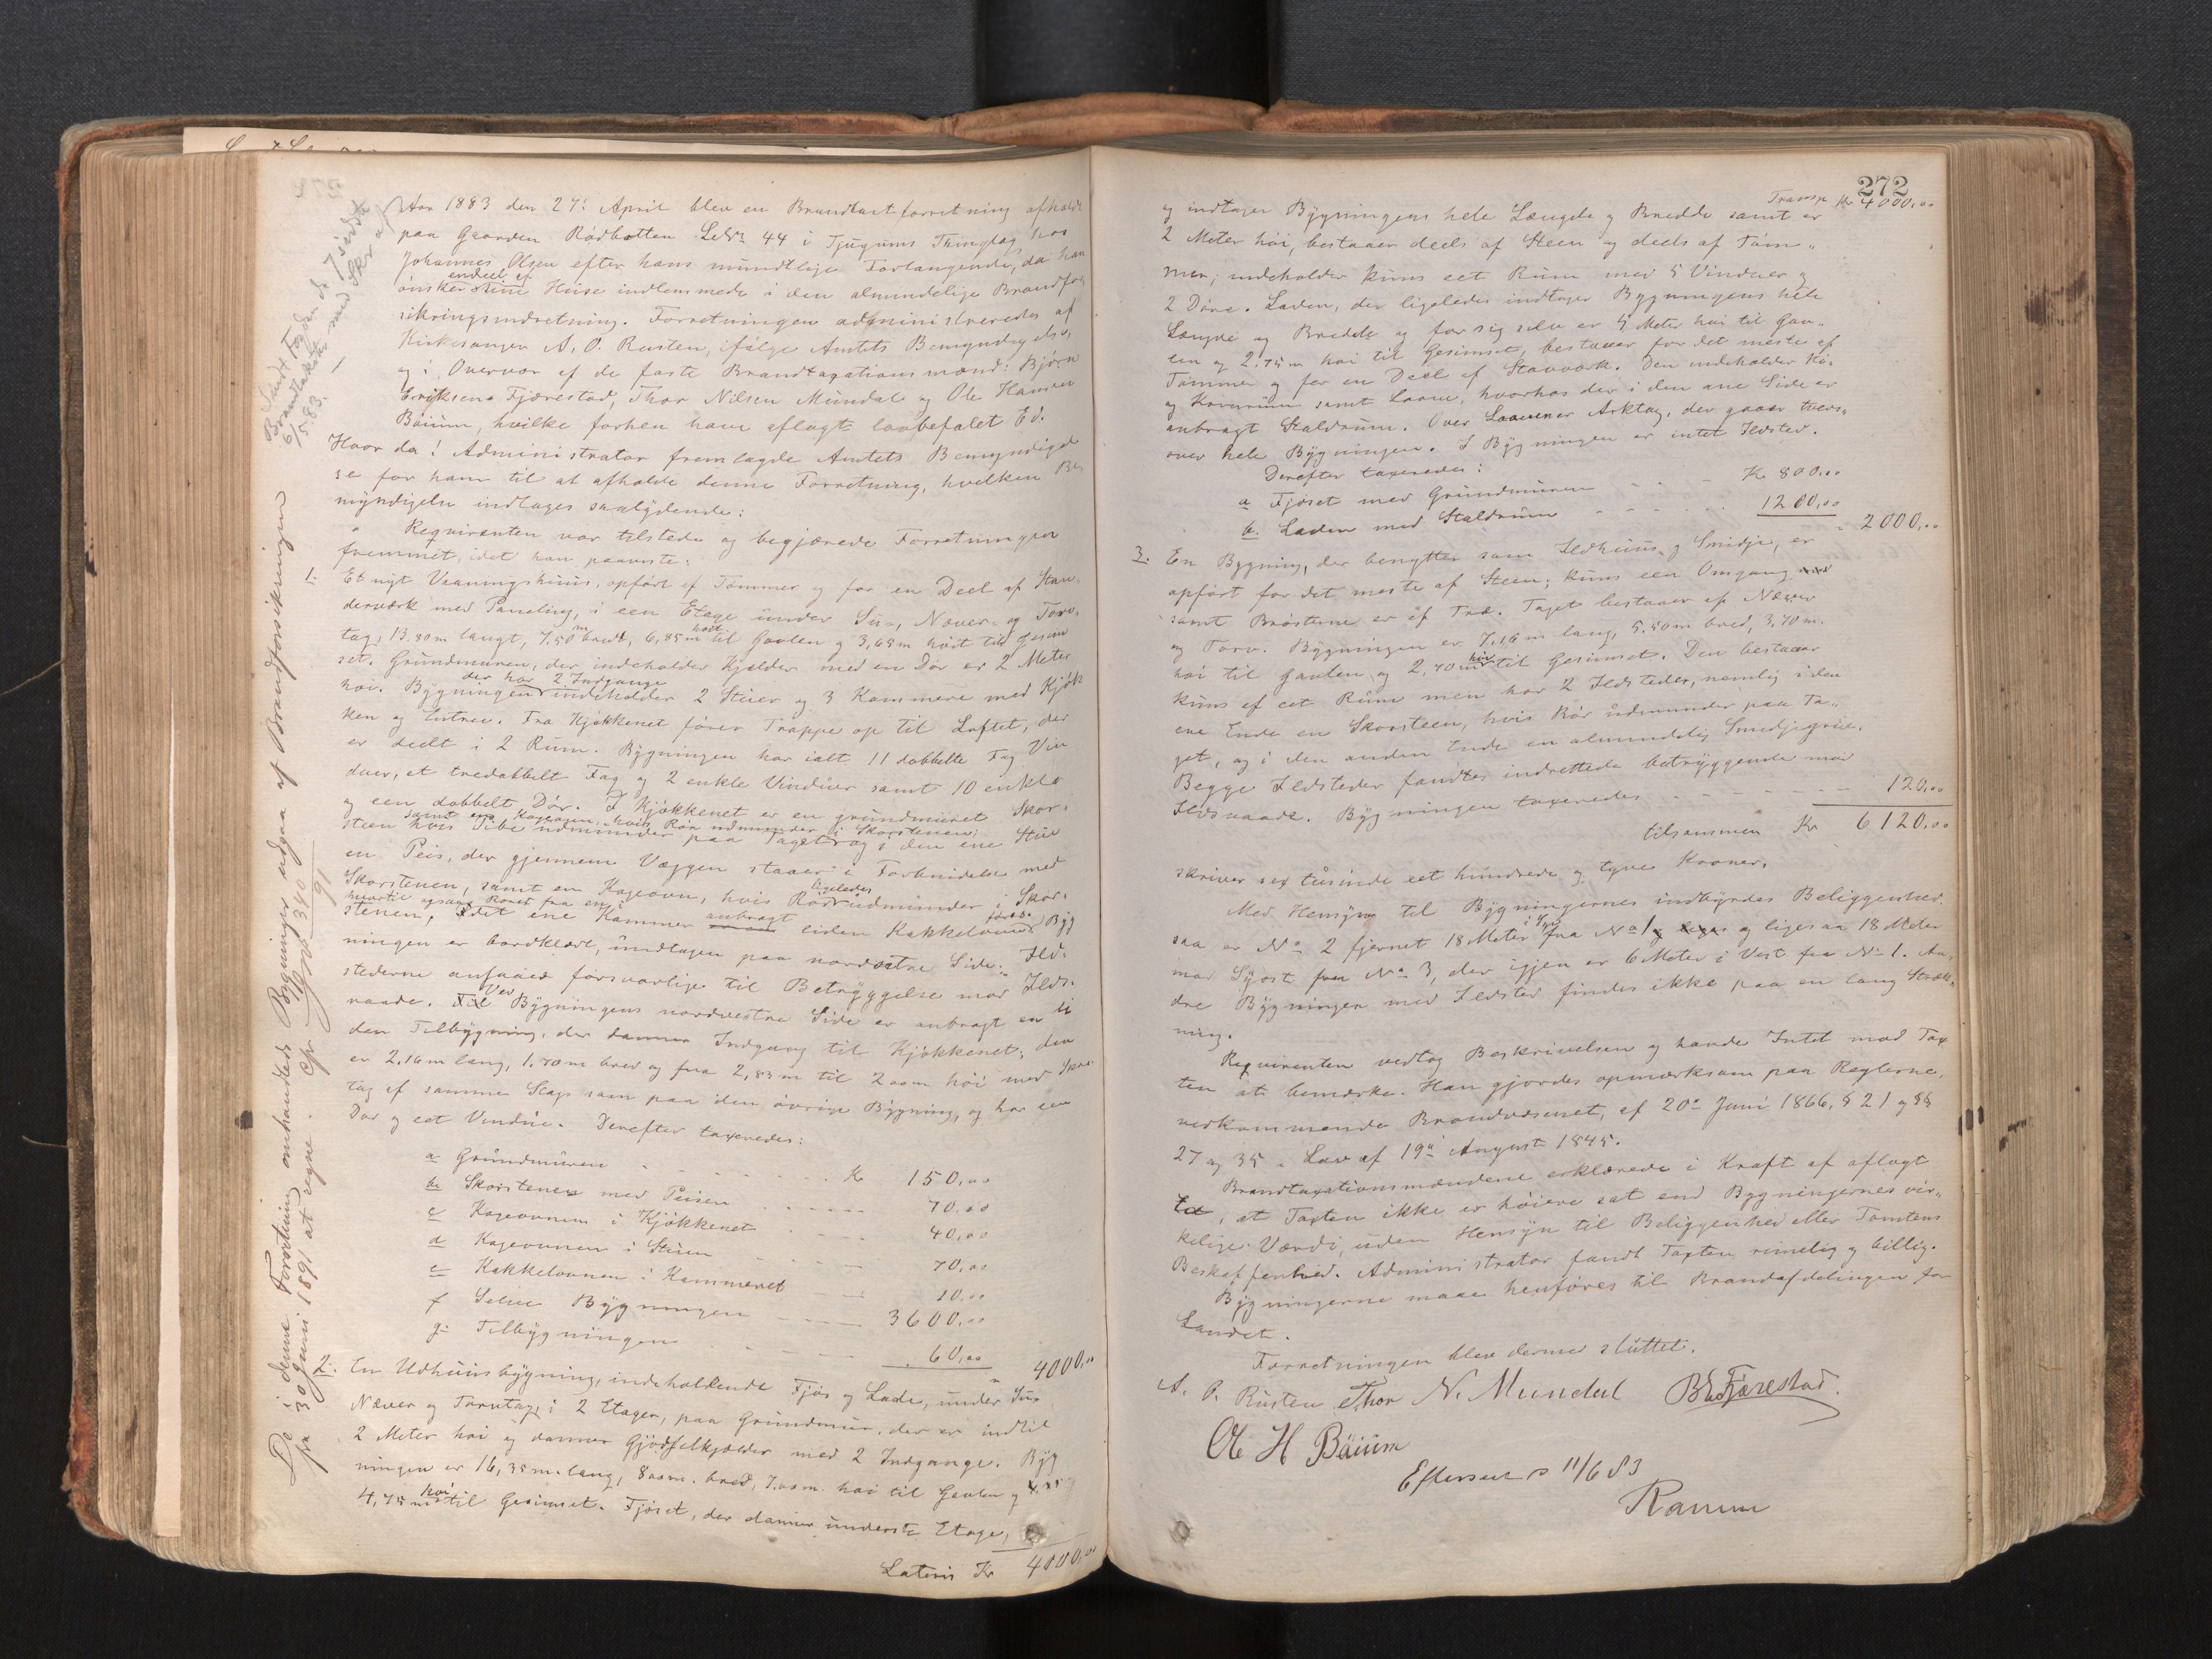 Aar 1883 den 27: April blev en Brandtaxtforretning afholdt
paa Gaarden Rødbotten LøbNo 44 i Tjugums Thinglag hos
Johannes Olsen efter hans mundtlige Forlangende, da han
ønsker endeel af sine Huse indlemmede i den almindelige Brandfor¬
sikringsindretning. Forretningen administreredes af
Kirkesanger A. O. Rusten, ifølge Amtets Bemyndigelse,
og i Overvær af de faste Brandtaxationsmænd: Bjørn
Eriksen Fjærestad, Thor Nilsen Mundal og Ole Hansen
Bøium, hvilke forhen have aflagt lovbefalet Ed.
Hvor da! Administrator fremlagde Amtets Bemyndigel
se for ham til at afholde denne Forretning, hvilken Be
myndigelse indtages saalydende:
Requirenten var tilstede og begjærede Forretningen
fremmet, idet han paaviste:
1. Et nyt Vaaningshuus, opført af Tømmer og for en Deel af Stan¬
derværk med Paneling, i een Etage under Su-, Næver- og Torv¬
tag, 13.80m langt, 7.50m bredt, 6,85m høit til Gavlen og 3,65m høit til Gesim
set. Grundmuren, der indeholder Kjelder med en Dør er 2 Meter
høi. Bygningen der har 2 Indgange indeholder 2 Stuer og 3 Kammere med Kjøk
ken og Entree. Fra Kjøkkenet fører Trappe op til Loftet, der
er deelt i 2 Rum. Bygningen har ialt 11 dobbelte Fag Vin
duer, et tredobbelt Fag og 2 enkle Vinduer samt 10 enkle
og een dobbelt Dør. I Kjøkkenet er en grundmuret Skor¬
steen hvis Pibe udmunder paa Taget samt en Kogeovn, hvis Rør udmunder i Skorstenen; og i den ene Stue
en Peis, der gjennem Væggen staaer i Forbindelse med
Skorstenen, samt en Kogeovn, hvis Rør ligeledes udmunder i Skor¬
stenen, hvortil ogsaa Røret fra en i det ene Kammer anbragt liden Kakkelovn føres. Byg
ningen er bordklædt, undtagen paa nordøstre Side. Ild¬
stederne ansaaes forsvarlige til Betryggelse mod Ilds¬
vaade. Ved Bygningens nordvestre Side er anbragt en li
den Tilbygning, der danner Indgang til Kjøkkenet; den
er 2.16m lang, 1.70m bred og fra 2,83m til 2.00m høi med Skraa
tag af samme Slags som paa den øvrige Bygning, og har een
Dør og eet Vindue. Derefter taxeredes:
a Grundmuren Kr 150,00
b. Skorstenen med Peisen 70,00
c Kogeovnen i Kjøkkenet 40,00
d Kogeovnen i Stuen 70,00
e Kakkelovnen i Kammeret 10,00
f Selve Bygningen 3600,00
g: Tilbygningen 60,00
4000,00
2. En Udhuusbygning, indeholdende Fjøs og Lade, under Su-
Næver og Torvtag, i 2 Etager, paa Grundmur, der er indtil
2 Meter høi og danner Gjødselkjælder med 2 Indgange. Byg
ningen er 16,35m. lang, 8.00m. bred, 7.00m. høi til Gavlen og
4,75m høi til Gesimset. Fjøset, der danner underste Etage,
Lateris Kr 4000,00
B. Sendt Fogden de 7 sidste
Brandtakster med Skr af
6/5.83.
De i denne Forretning omhandlede Bygninger udgaa af Brandforsikringen
fra 30 Juni 1891 at regne. Cfr Jno 340/91
272
Transp Kr 4000,00
og indtager Bygningens hele Længde og Bredde samt er
2 Meter høi, bestaaer deels af Steen og deels af Tøm¬
mer; indeholder kuns eet Rum med 5 Vinduer og
2 Døre. Laden, der ligeledes indtager Bygningens hele
Længde og Bredde og for sig selv er 5 Meter høi til Gav¬
len og 2.75m høi til Gesimset, bestaaer for det meste af
Tømmer og for en Deel af Stavværk. Den indeholder Hø-
og Kornrum samt Laave, hvorhos der i den ene Side er
anbragt Staldrum. Over Laaven er Arktag, der gaaer tvers¬
over hele Bygningen. I Bygningen er intet Ildsted.
Derefter taxeredes:
a Fjøset med Grundmuren Kr 800,00
b. Laden med Staldrum 1200,00
2000,00
3. En Bygning, der benyttes som Ildhuus og Smidje, er
opført for det meste af Steen; kuns een Omgang
samt Brøstene er af Træ. Taget bestaaer af Næver
og Torv. Bygningen er 7,16m lang, 5.50m bred, 3,70m.
høi til Gavlen og 2,70m høi til Gesimset. Den bestaaer
kuns af eet Rum men har 2 Ildsteder, nemlig i den
ene Ende en Skorsteen, hvis Rør udmunder paa Ta¬
get, og i den anden Ende en almindelig Smidjegrue.
Begge Ildsteder fandtes indrettede betryggende mod
Ildsvaade. Bygningen taxeredes 120,00
tilsammen Kr 6120,00
skriver sex tusinde eet hundrede og tyve Kroner.
Med Hensyn til Bygningernes indbyrdes Beliggenhed
saa er No 2 fjernet 18 Meter i Syd fra No 1 og ligesaa 18 Meter
mod Sydost fra No 3, der igjen er 6 Meter i Vest fra No 1. An¬
dre Bygninger med Ildsted findes ikke paa en lang Stræk¬
ning.
Requirenten vedtog Beskrivelsen og havde Intet mod Tax
ten at bemærke. Han gjordes opmærksom paa Reglerne,
vedkommende Brandvæsenet, af 20de Juni 1866, § 21 og §§
27 og 35 i Lov af 19de August 1845.
Brandtaxationsmændene erklærede i Kraft af aflagt
Ed, at Taxten ikke er høiere sat end Bygningernes vir¬
kelige Værdi, uden Hensyn til Beliggenhed eller Tomtens
Beskaffenhed. Administrator fandt Taxten rimelig og billig.
Bygningerne maae henføres til Brandafdelingen for
Landet.
Forretningen blev dermed sluttet.
A. O. Rusten Thor N. Mundal B E Fjærestad.
Ole H Bøium
Efterseet d 11/6 83
Ramm